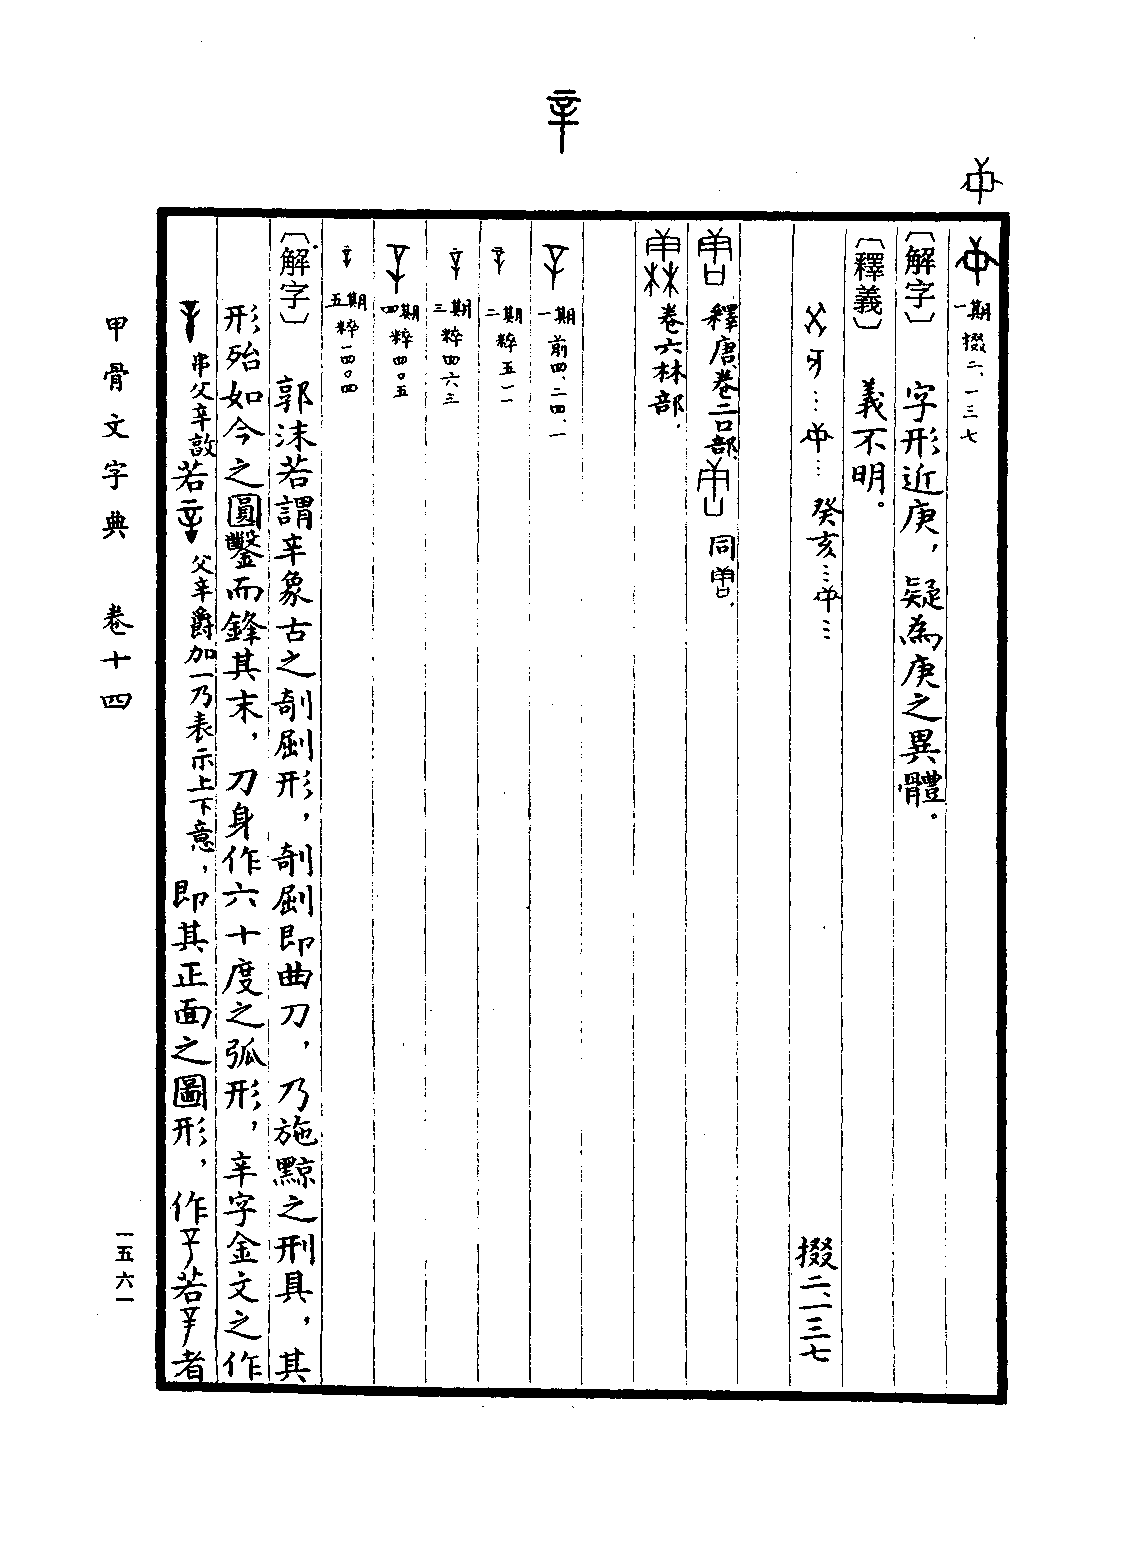 辛
一期 掇二、一三七
〔解字〕 字形近庚，疑為庚之異體。
〔釋義〕 義不明。
癸亥…… 掇二、一三七
釋唐卷二口部 同
卷六林部．
一期 前四、二四、一
二期 粹五一一
三期 粹四六三
四期 粹四〇五
五期 粹一四〇四
〔解字〕 郭沫若謂辛象古之剞劂形，剞劂即曲刀，乃施黥之刑具，其
形殆如今之圓鑿而鋒其末，刀身作六十度之弧形，辛字金文之作
父辛𣪘若 父辛爵加一乃表示上下意，即其正面之圖形，作 若 者
甲骨文字典 卷十四
一五六一